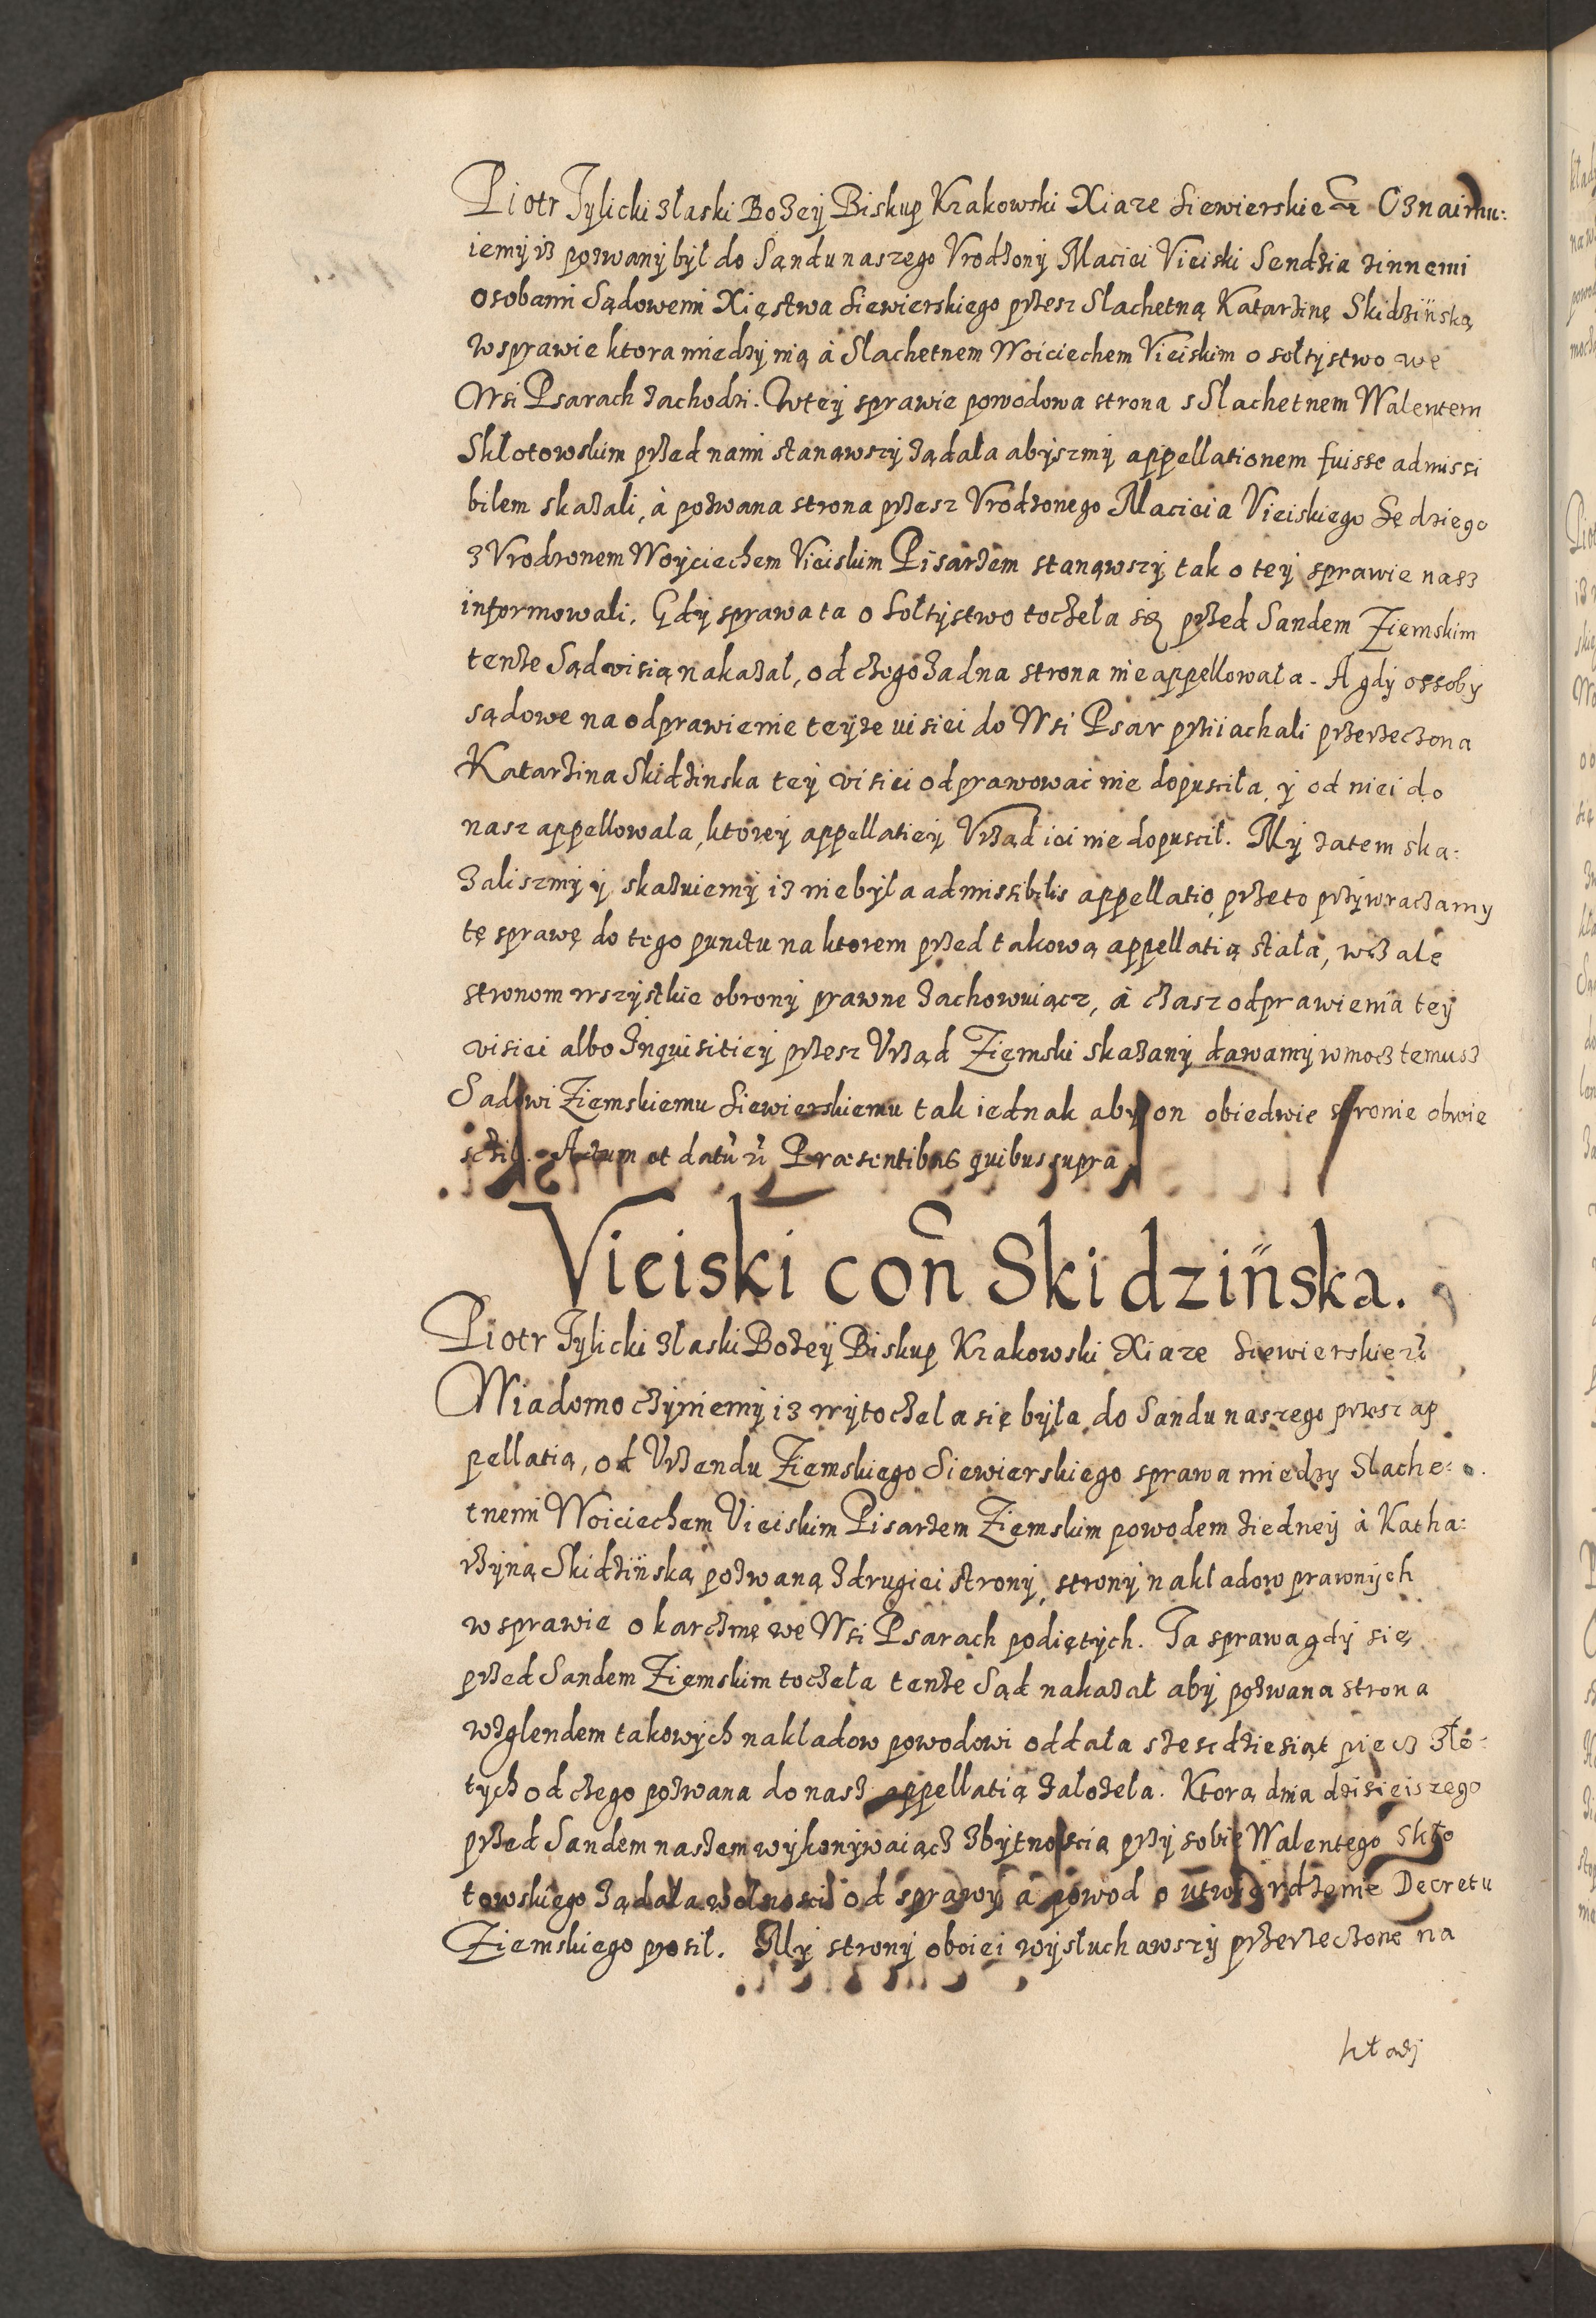 Piotr Tylicki z łaski Bozey Biskup Krakowski Xiaze Siewierskie etc Oznaimu:
iemy iz pozwany był do Sandu naszego Vrodzony Maciei Vieiski Sendzia zinnemi
osobami Sądowemi Xięstwa Siewierskiego przesz Slachetną Katarzinę Skidzińską
w sprawie ktora miedzy nią à Slachetnem Woiciechem Vieiskim o sołtystwo we
Wsi Psarach zachodzi. W tey sprawie powodowa strona s Slachetnem Walentem
Skłotowskim przed nami stanąwszy ządała abyszmy appellationem fuisse admissi
bilem skazali, à pozwana strona przesz Vrodzonego Macieia Vieiskiego Sędziego
z Vrodzonem Woyciechem Vieiskim Pisarzem stanąwszy tak o tey sprawie nasz
informowali. Gdy sprawa ta o Sołtystwo toczeła się przed Sandem Ziemskim
tenze Sąd visią nakazał, od czego zadna strona nie appellowała. A gdy ossoby
sądowe na odprawienie teyze visiei do Wsi Psar prziiachali przerzeczona
Katarzina Skidzinska tey visiei odprawować nie dopusciła, y od niei do
nasz appellowała, ktorey appellatiey Vrząd iei nie dopuscił. My zatem ska:
zaliszmy y skazuiemy iz nie była admissibilis appellatio, przeto przywraczamy
tę sprawę do tego punctu na ktorem przed takową appellatią stała, wcale
stronom wszystkie obrony prawne zachowuiącz, à czasz odprawienia tey
visiei albo Inquisitiey przesz Vrząd Ziemski skazany dawamy w mocz temusz
Sadowi Ziemskiemu Siewierskiemu tak iednak aby on obiedwie stronie obwie
scził. Actum et datum ut Præsentibus quibus supra
Vieiski con Skidzińska.
Piotr Tylicki z łaski Bozey Biskup Krakowski Xiaze Siewierskie etc
Wiadomo czyniemy iz wytoczeła się była do Sandu naszego przesz ap
pellatią, od Vrzendu Ziemskiego Siewierskiego sprawa miedzy Slache:
tnemi Woiciechem Vieiskim Pisarzem Ziemskim powodem ziedney à Katha:
rzyną Skidzińską pozwaną z drugiei strony, strony nakładow prawnych
w sprawie o karczmę we Wsi Psarach podiętych. Ta sprawa gdy się
przed Sandem Ziemskim toczeła tenze Sąd nakazał aby pozwana strona
wzglendem takowych nakładow powodowi oddała szesdziesiąt piecz zło:
tych od czego pozwana do nasz appellatią załozeła. Ktorą dnia dzisieiszego
przed Sandem naszem wykonywaiącz z bytnoscią przy sobie Walentego Skło
towskiego ządała wolnoscii od sprawy à powod o utwierdzenie Decretu
Ziemskiego prosił. My strony oboiei wysłuchawszy przerzeczone na
kłady